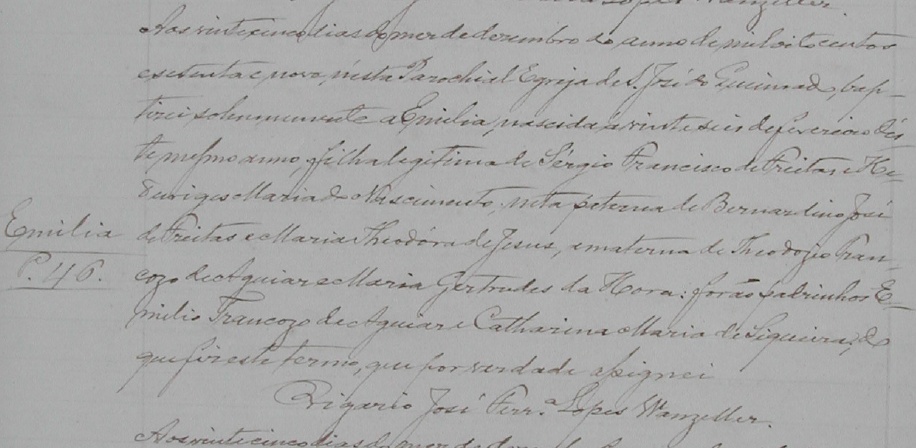 Lopes Wanzeller.
Aos vinte cinco dias do mez de dezembro do anno de mil oito centos
e setenta e nove, n'esta Parochial Egreja de S. José do Queimado, bap-
tizei solemnemente a Emilia, nascida a vinte seis de fevereiro d'es-
te mesmo anno, filha legitima de Sérgio Francisco de Freitas e He-
duviges Maria do Nascimento, neta paterna de Bernardino José
Emilia
de Freitas e Maria Theodóra de Jesus, e materna de Theodozio Tran-
P. 46.
cozo de Aguiar e Maria Gertrudes da Hora: forão padrinhos E-
milio Trancozo de Aguiar e Catharina Maria de Siqueira; do
que fiz este termo, que por verdade assignei
Vigario José Ferr.ª Lopes Wanzeller.
Aos vinte cinco dias do mez de